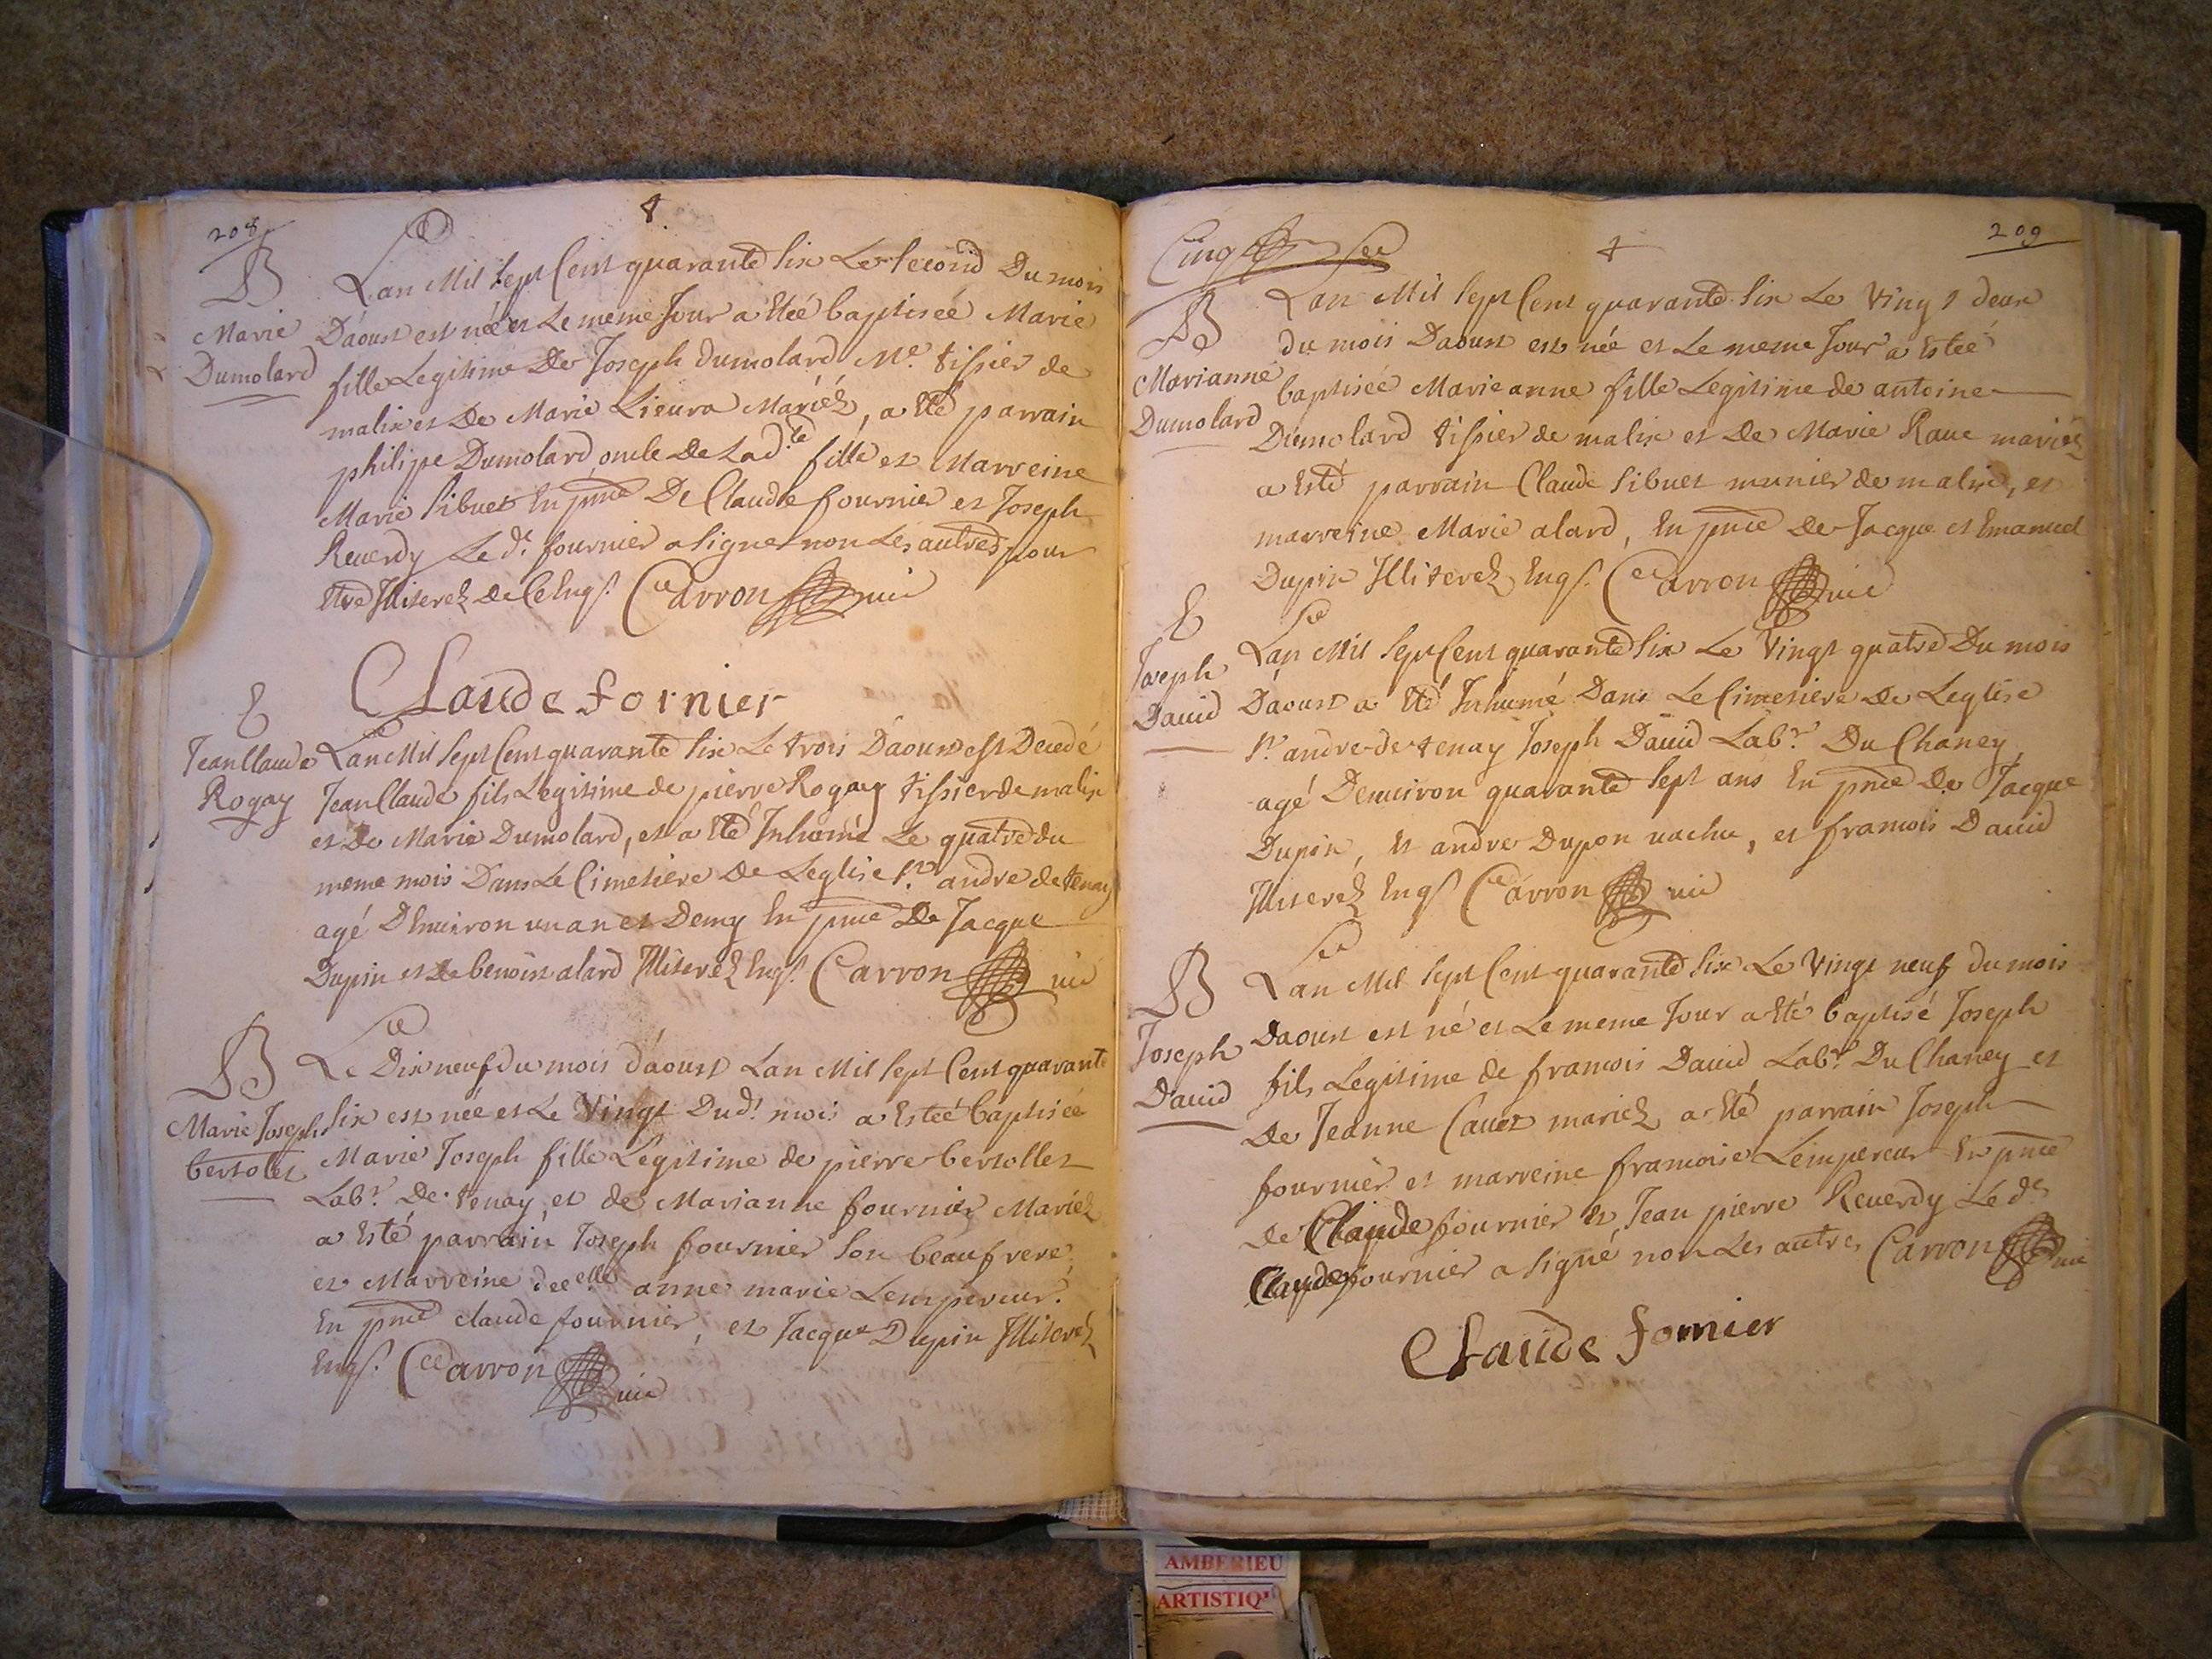 208
B
Marie
Dumolard
Lan Mil Sept Cent quarante Six Le Second Du mois
Daoust est née et Le meme Jour a eteé baptiseé Marie
fille Legitime De Joseph dumolard Me. tissier de
malix et De Marie Lieura Mariéz, a ete parrain
philippe Dumolard oncle De Lad.te fille et Marreine
Marie Sibuet En pnce De Claude fournier et Joseph
Reuerdy Le d.t fournier a Signe non Les autres pour
etre Illiterez De Ce Enqs. Carron vic
Claude fornier
E
Jean Claude
Rogay
Lan Mil Sept Cent quarante Six Le trois Daoust est Decedé
Jean Claude fils Legitime de pierre Rogay tissier de malix
et De Marie Dumolard, et a eté Inhumé Le quatre du
meme mois Dans Le Cimetiere De Leglise St. andre de tenay
agé Denuiron un an et Demy En pnce De Jacque
Dupin et de benoist alard Illiterez Enqs. Carron vic
B
Marie Joseph
bertolet
Le Dix neuf du mois daoust Lan Mil Sept Cent quarante
Six est née et Le Vingt Dud.t mois a esteé baptiseé
Marie Joseph fille Legitime de pierre bertollet
Labr. De tenay, et de Marianne fournier Mariez
a esté parrain Joseph fournier Son beaufrere,
et Marreine delle anne marie Lempereur.
En pnce claude fournier, et Jacque Dupin Illiterez
Enqs. Carron vic
209
Cinq
B
Marianne
Dumolard
Lan Mil Sept Cent quarante Six Le Vingt deux
du mois Daoust est née et Le meme Jour a esteé
baptiseé Marieanne fille Legitime de antoine
Dumolard tissier de malix et De Marie Raue mariez
a esté parrain Claude Sibuet munier de malix, et
marreine Marie alard, En pnce De Jacque et Emanuel
Dupin Illiterez Enqs. Carron vic
E
Joseph
Dauid
Lan Mil Sept Cent quarante Six Le Vingt quatre Du mois
Daoust a eté Inhumé Dans Le Cimetiere De Leglise
St. andre de tenay Joseph Dauid Labr. Du Chaney
agé Denuiron quarante Sept ans En pnce De Jacque
Dupin, et andre Dupon uachu, et francois Dauid
Illiterez Enqs Carron vic
B
Joseph
Dauid
Lan Mil Sept Cent quarante Six Le Vingt neuf du mois
Daoust est né et Le meme Jour a eté baptisé Joseph
fils Legitime de francois Dauid Labr. Du Chaney et
De Jeanne Cauet mariez a eté parrain Joseph
fournier et marreine francoise Lempereur En pnce
de Claude fournier et Jean pierre Reuerdy Le dt
Claude fournier a Signé non Les autres Carron vic
Claude fornier
AMBERIEU
ARTISTIQ'